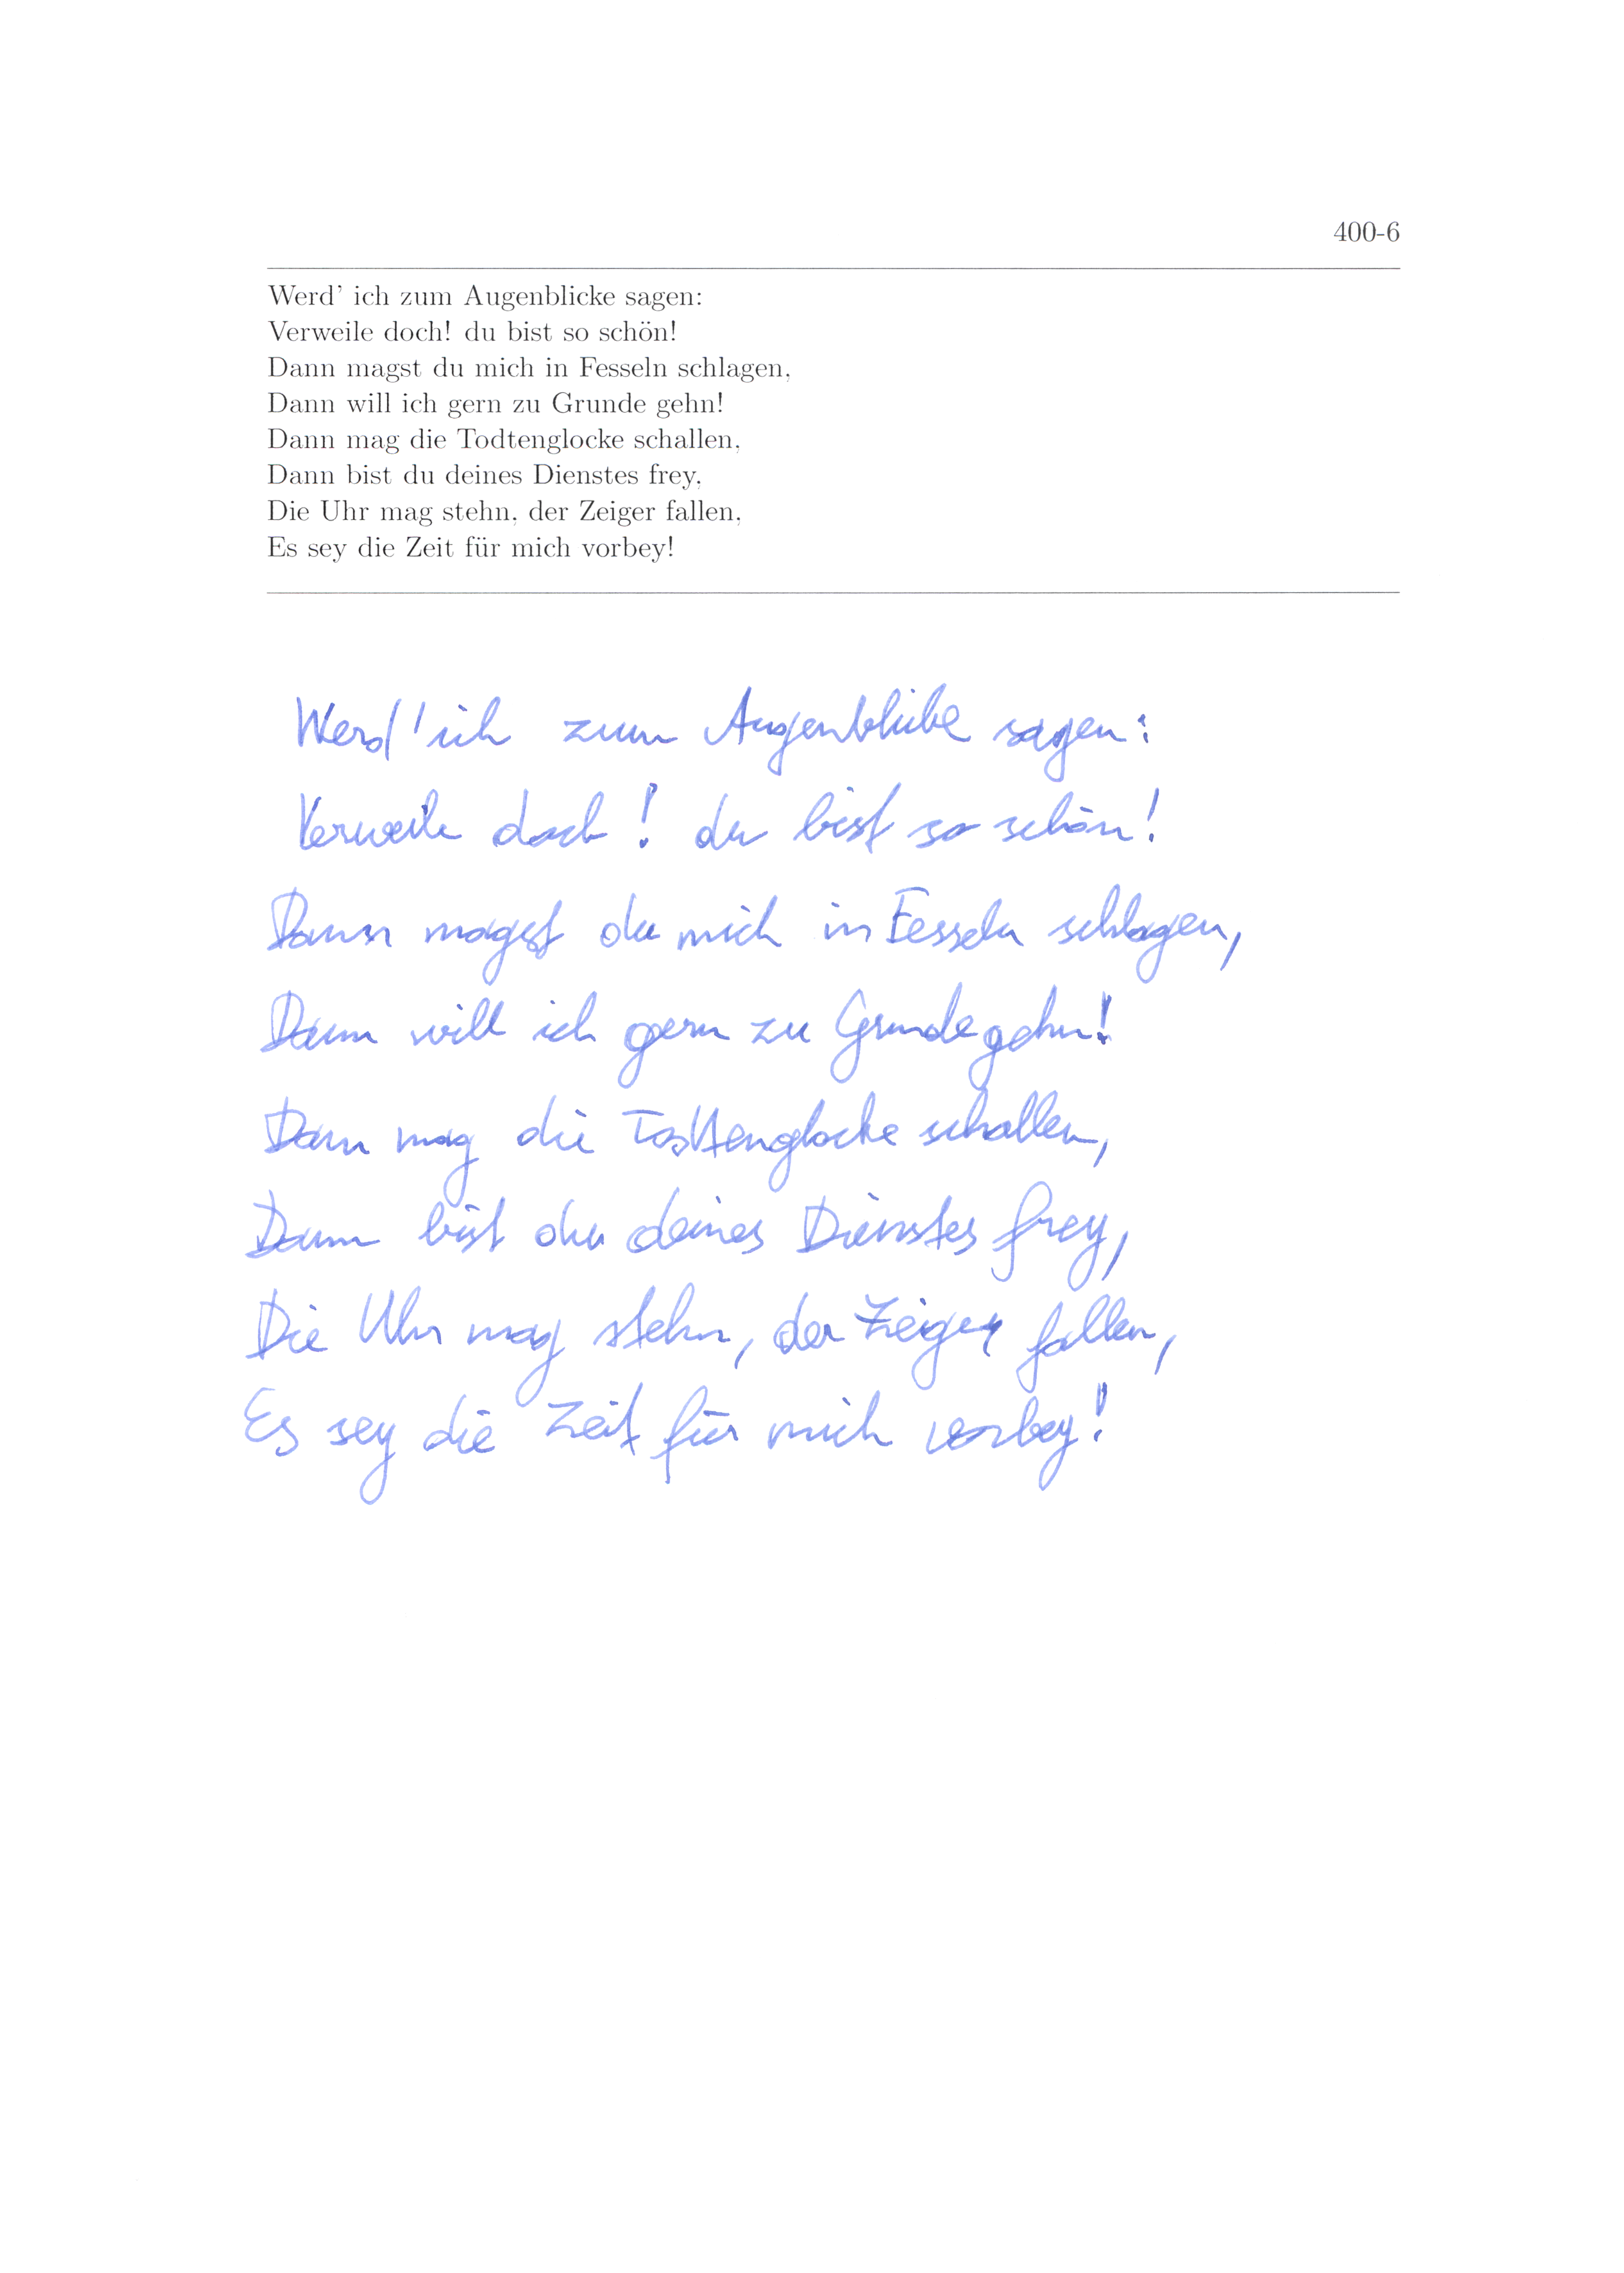 400-6
Werd' ich zum Augenblicke sagen:
Verweile doch! du bist so schön!
Dann magst du mich in Fesseln schlagen,
Dann will ich gern zu Grunde gehn!
Dann mag die Todtenglocke schallen,
Dann bist du deines Dienstes frey,
Die Uhr mag stehn, der Zeiger fallen,
Es sey die Zeit für mich vorbey!
Werd' ich zum Augenblicke sagen:
Verweile doch! du bist so schön!
Dann magst du mich in Fesseln schlagen,
Dann will ich gern zu Grunde gehn!
Dann mag die Todtenglocke schallen,
Dann bist du deines Dienstes frey,
Die Uhr mag stehn, der Zeiger fallen,
Es sey die Zeit für mich vorbey!